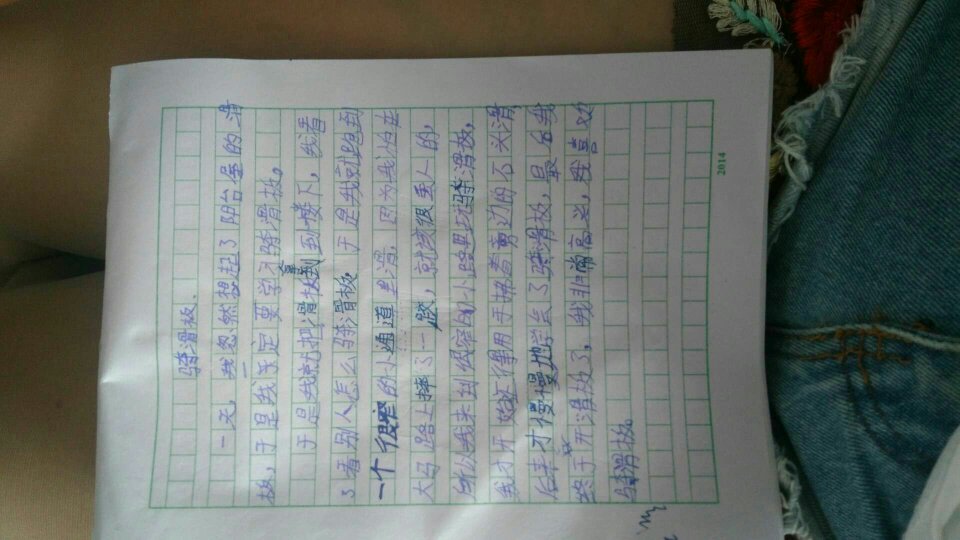 骑滑板
一天，我忽然想起了阳台屋的滑
板，于是我予定要学习骑滑板。
于是我就把滑板拿到到楼下，我看
了看别人怎么骑滑板，于是我就跑到
一个很窄的小通道里滑，因为我怕在
大马路上摔了一跤，就该很丢人的，
所以我来到很窄的小路里玩骑滑板，
我才开始还得用手拂着旁边的石头滑，
后来才慢慢地学会了骑滑板，最后我
终于开滑放了，我非常高兴，我喜欢
骑滑板
2014